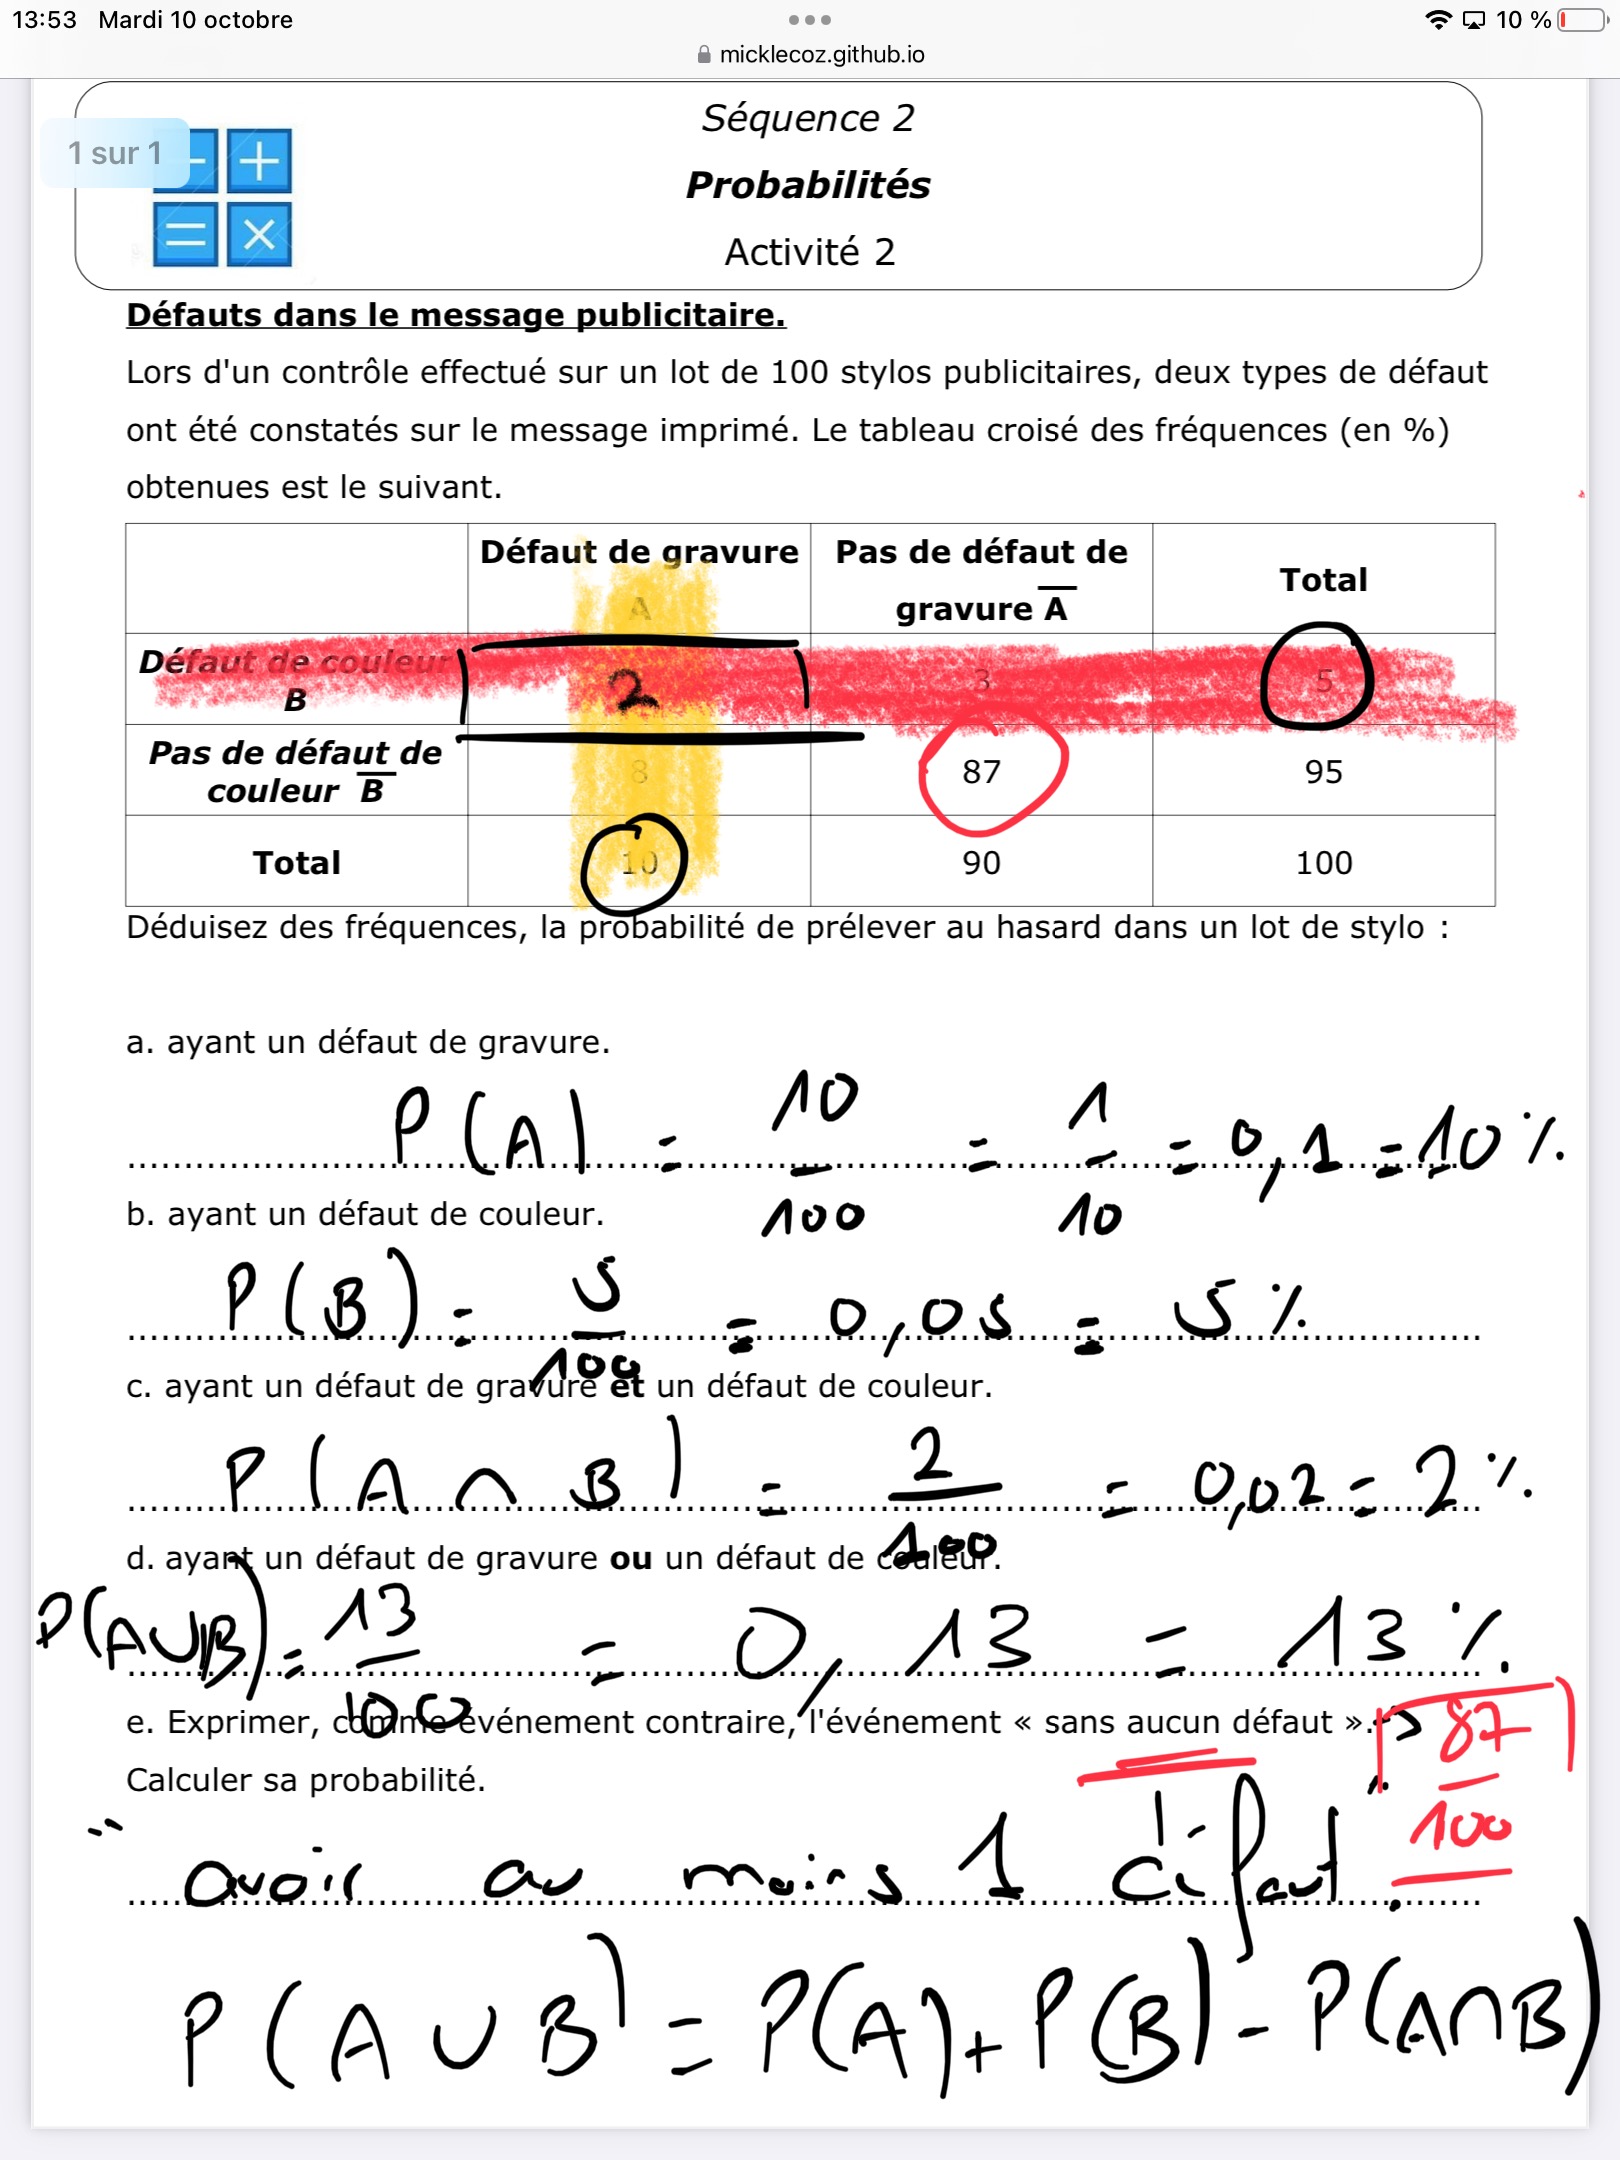 13:53 Mardi 10 octobre
10 %
micklecoz.github.io
1 sur 1
Séquence 2
Probabilités
Activité 2
Défauts dans le message publicitaire.
Lors d'un contrôle effectué sur un lot de 100 stylos publicitaires, deux types de défaut
ont été constatés sur le message imprimé. Le tableau croisé des fréquences (en %)
obtenues est le suivant.
Défaut de gravure A Pas de défaut de gravure A̅ Total
Défaut de couleur B 2 3 5
Pas de défaut de couleur B̅ 8 87 95
Total 10 90 100
Déduisez des fréquences, la probabilité de prélever au hasard dans un lot de stylo :
a. ayant un défaut de gravure.
P(A) = 10/100 = 1/10 = 0,1 = 10 %
b. ayant un défaut de couleur.
P(B) = 5/100 = 0,05 = 5 %
c. ayant un défaut de gravure et un défaut de couleur.
P(A ∩ B) = 2/100 = 0,02 = 2 %
d. ayant un défaut de gravure ou un défaut de couleur.
P(A∪B) = 13/100 = 0,13 = 13 %
e. Exprimer, comme événement contraire, l'événement « sans aucun défaut ». 87/100
Calculer sa probabilité.
" avoir au moins 1 défaut "
P(A ∪ B) = P(A) + P(B) - P(A∩B)